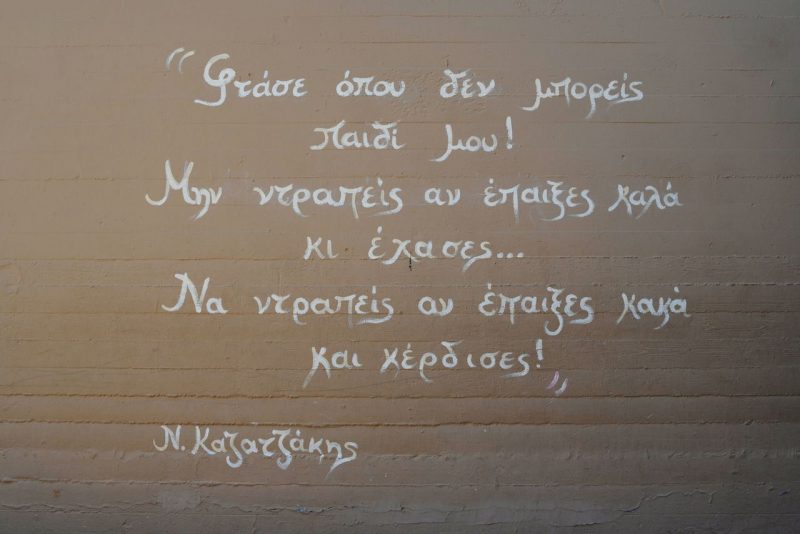 “Φτάσε όπου δεν μπορείς
παιδί μου!
Μην ντραπείς αν έπαιξες καλά
κι έχασες...
Να ντραπείς αν έπαιξες κακά
και κέρδισες!”
Ν. Καζατζάκης